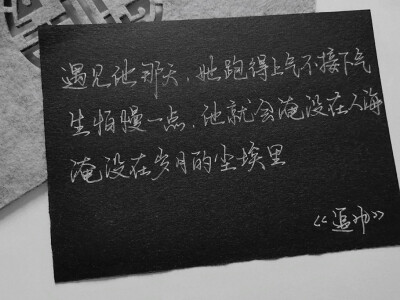 遇见他那天，她跑得上气不接下气
生怕慢一点，他就会淹没在人海
淹没在岁月的尘埃里
《追帅》